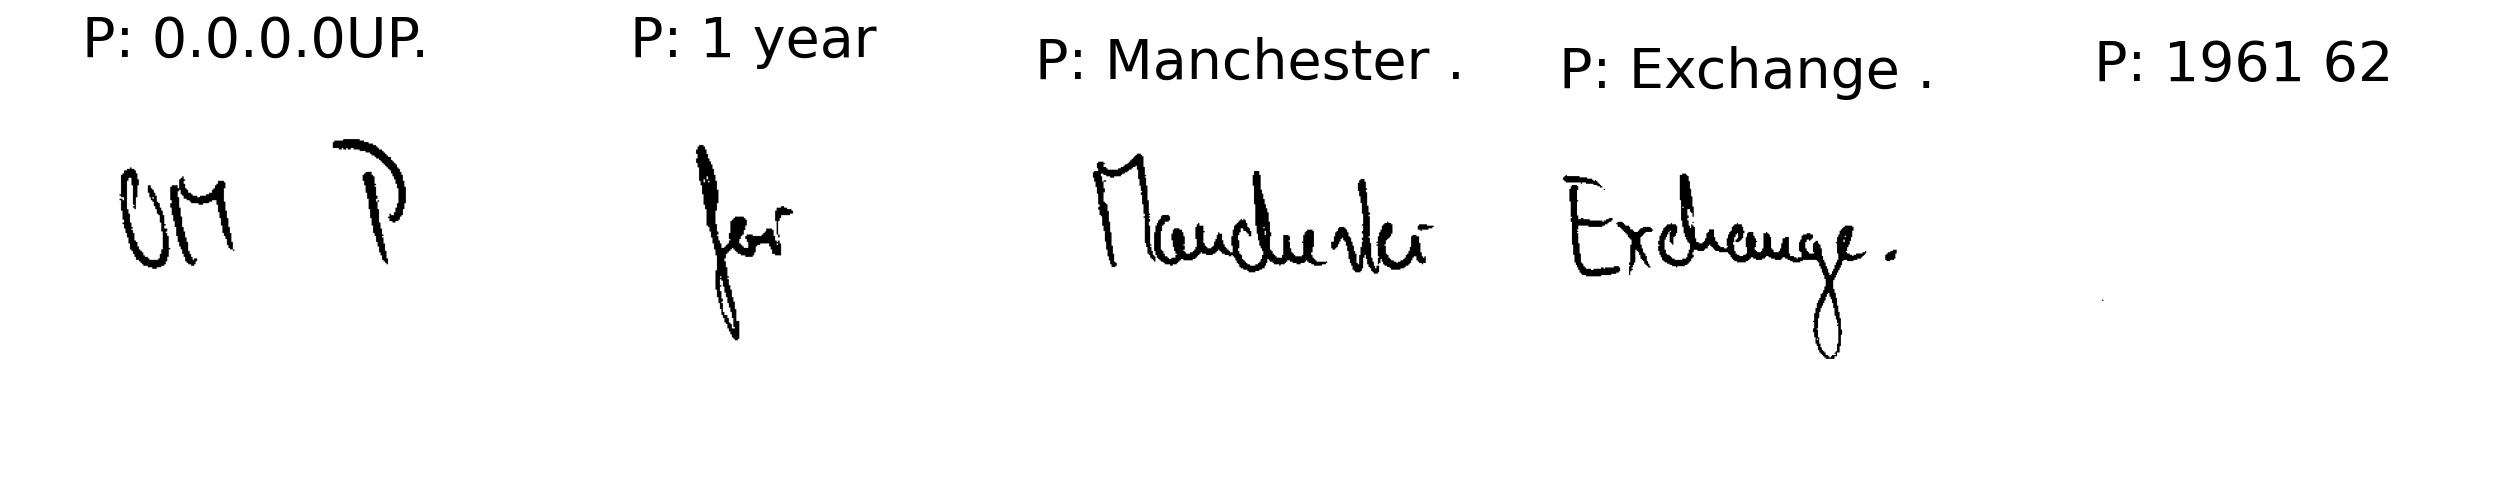 P: 0.0.0.0UP. P: 1 year P: Manchester . P: Exchange . P: 1961 62
Manchester Exchange .